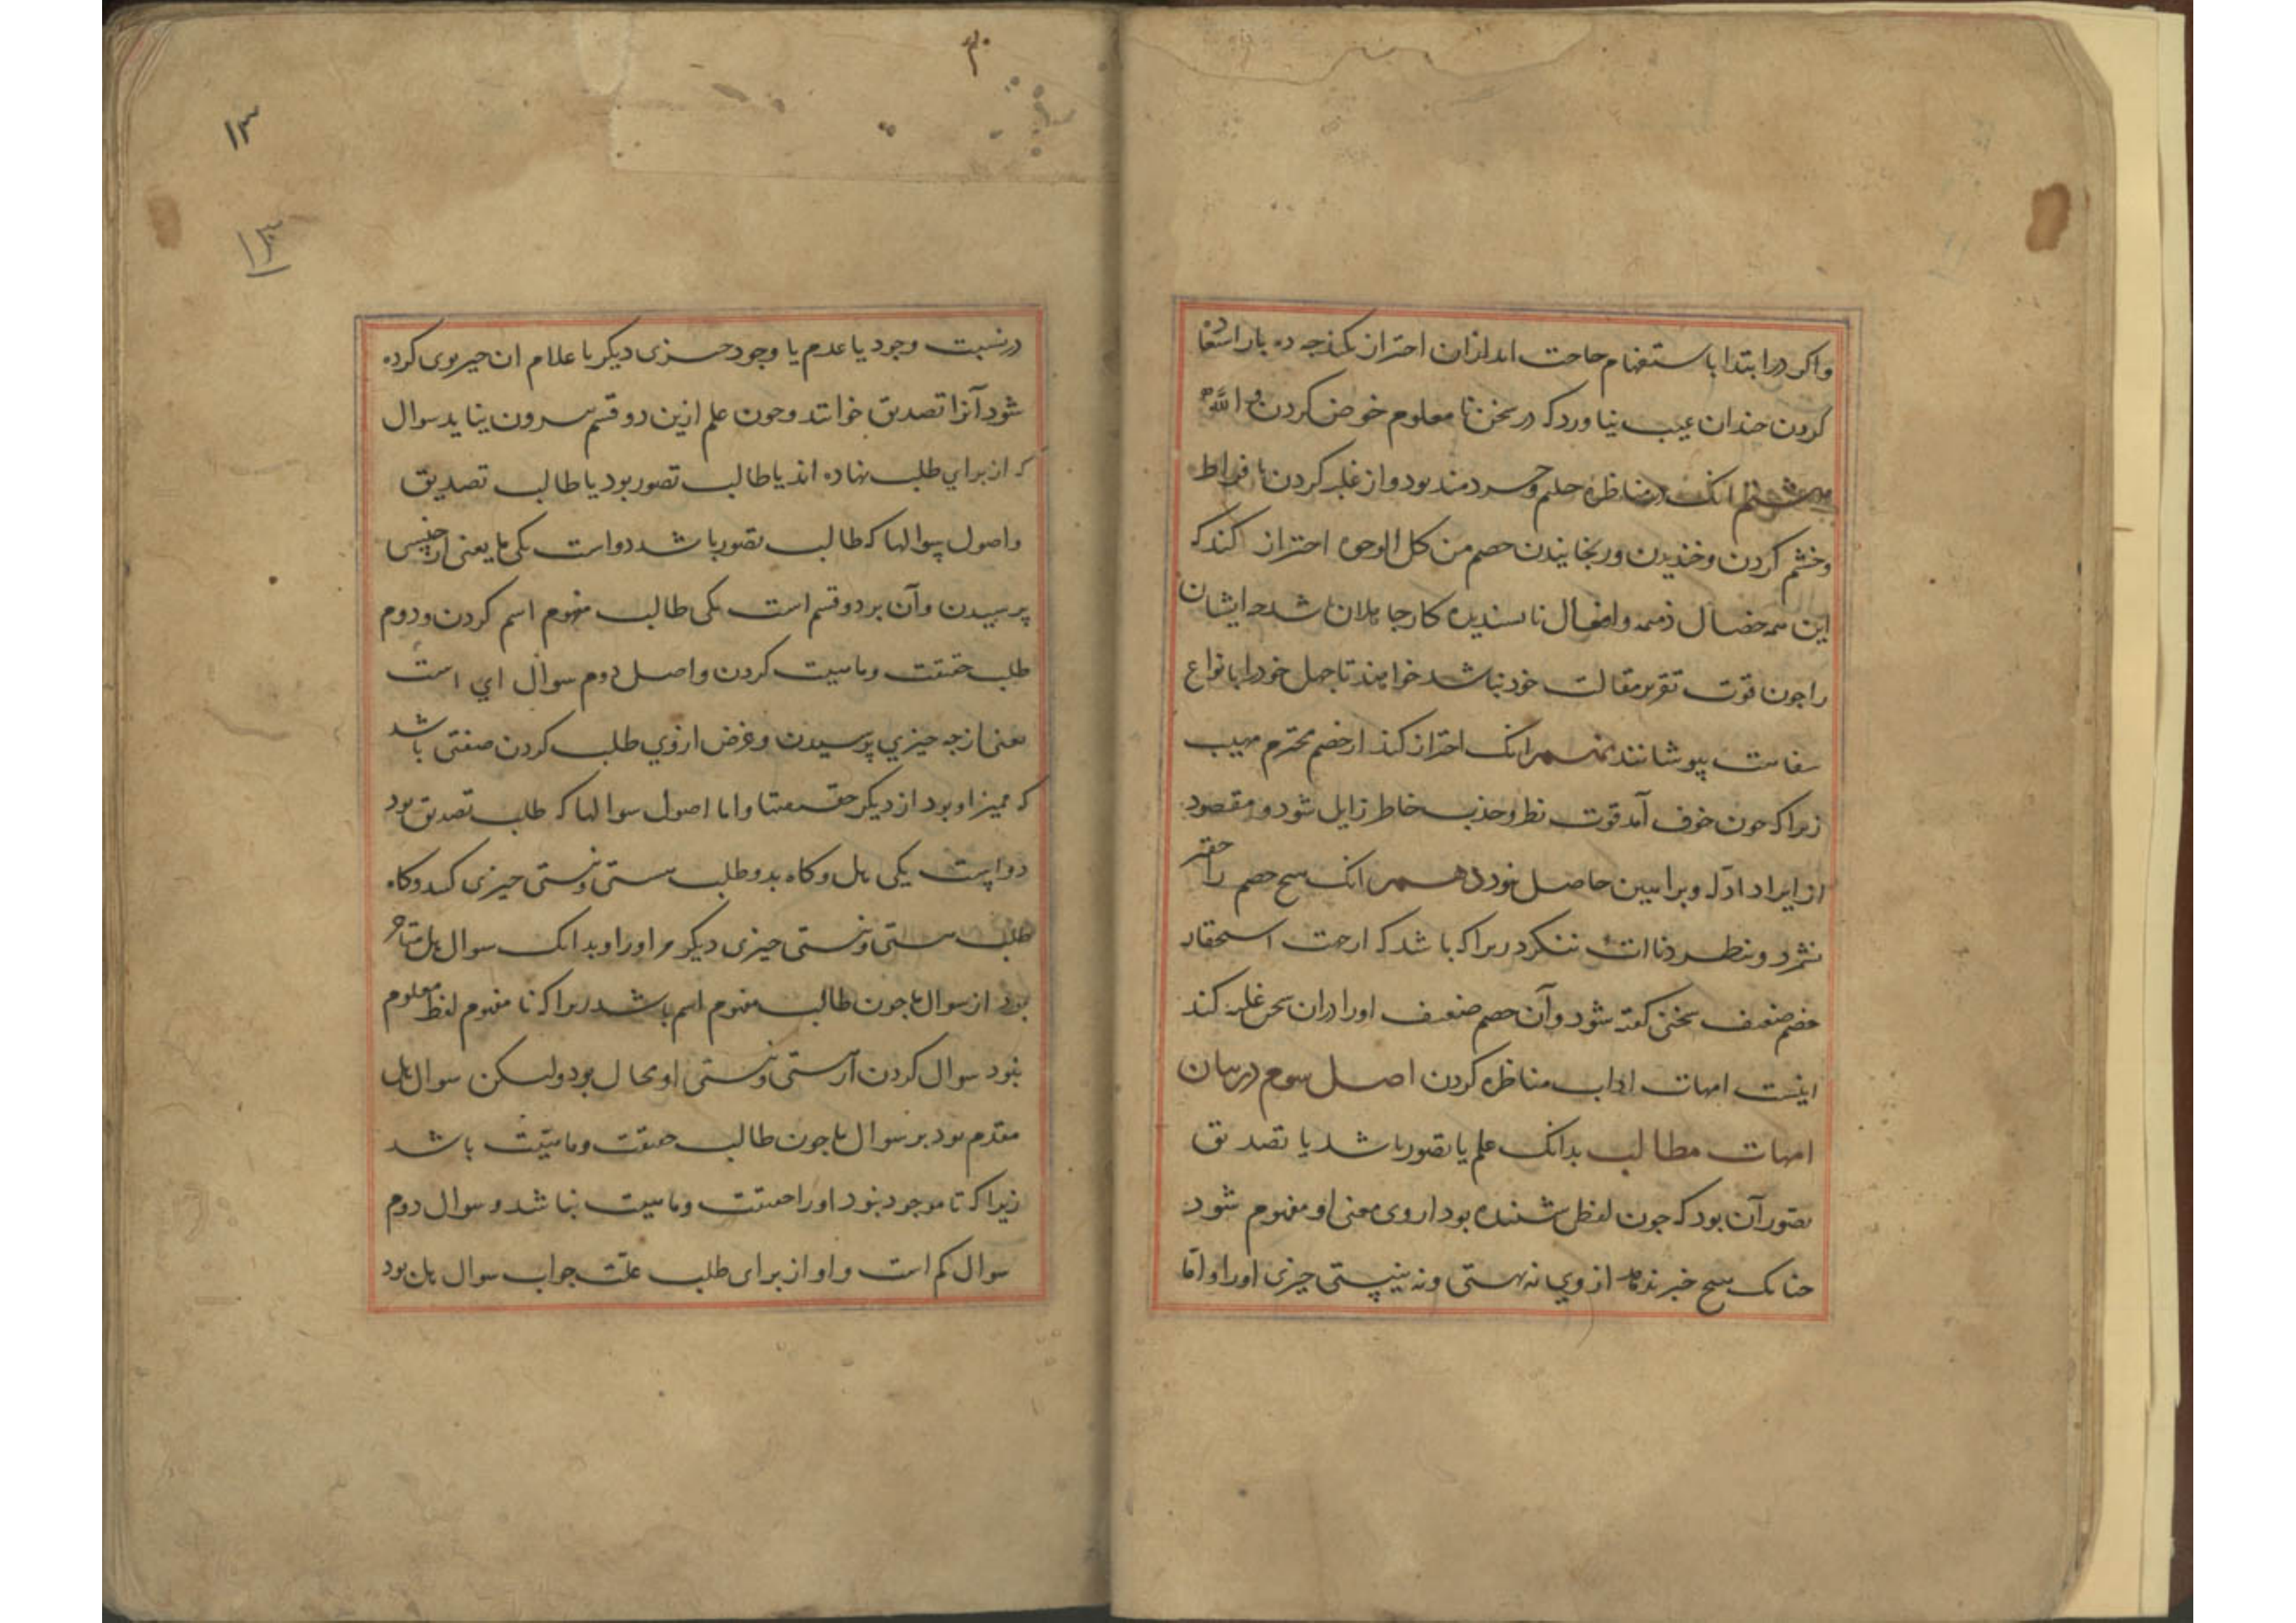 واکر در ابتدا باستفهام حاجت اید ازان احتراز نکند جه ده بار استفهام
کردن جندان عیب نیاورد که در سخن نا معلوم خوض کردن والله
هشتم انک در مناظره حلیم و خردمند بود و از غلبه کردن بافراط
وخشم کردن و خندیدن و رنجانیدن خصم من کل الوجوه احتراز کند که
این همه خصال ذمیمه وافعال ناپسندیده کار جاهلان باشد جه ایشان
را جون قوت تقریر مقالت خود نباشد خواهند تا جهل خود را بانواع
سفاهت بپوشانند نهم انک احتراز کند از خصم محترم مهیب
زیرا که جون خوف آمد قوت نظر و حذب خاطر زایل شود و مقصود
از ایراد ادله و براهین حاصل نبود دهم انک هیچ خصم را حقیر
نشمرد و بنظر دناات ننکرد زیرا که باشد که از جهت استحقار
خصم ضعیف سخنی کفته شود وآن خصم ضعیف اورا دران سخن غلبه کند
اینست امهات اداب مناظره کردن اصل سوم در بیان
امهات مطالب بدانک علم یا تصور باشد یا تصدیق
تصور آن بود که جون لفظی شنیده بود از وی معنی او مفهوم شود
جنانک هیچ خبر ندهد از وی نه بهستی ونه بنیستی چیزی اورا واما
م
۱۳
۱۳
در نسبت وجود یا عدم یا وجود جیزی دیکر با علام ان جیز بوی کرده
شود آنرا تصدیق خوانند وجون علم ازین دو قسم بیرون نیاید سوال
که از برای طلب نهاده اند یا طالب تصور بود یا طالب تصدیق
واصول سوالها که طالب تصور باشد دواست یکی ما یعنی از جیسی
پرسیدن وآن بر دو قسم است یکی طالب مفهوم اسم کردن ودوم
طلب حقیقت و ماهیت کردن واصل دوم سوال ای است
یعنی از جه جیزی پرسیدن وغرض ازوی طلب کردن صفتی باشد
که ممیز او بود از دیکر حقیقتها واما اصول سوالها که طلب تصدیق بود
دواست یکی هل وکاه بدو طلب هستی ونیستی جیزی کند وکاه
طلب هستی ونیستی جیزی دیکر مر اورا وبدانک سوال هل متاخر
بود از سوال ما جون طالب مفهوم اسم باشد زیرا که تا مفهوم لفظ معلوم
نبود سوال کردن از هستی ونیستی او محال بود ولیکن سوال هل
مقدم بود بر سوال ما جون طالب حقیقت وماهیت باشد
زیرا که تا موجود نبود اورا حقیقت وماهیت نباشد وسوال دوم
سوال لم است واو از برای طلب علت جواب سوال هل بود